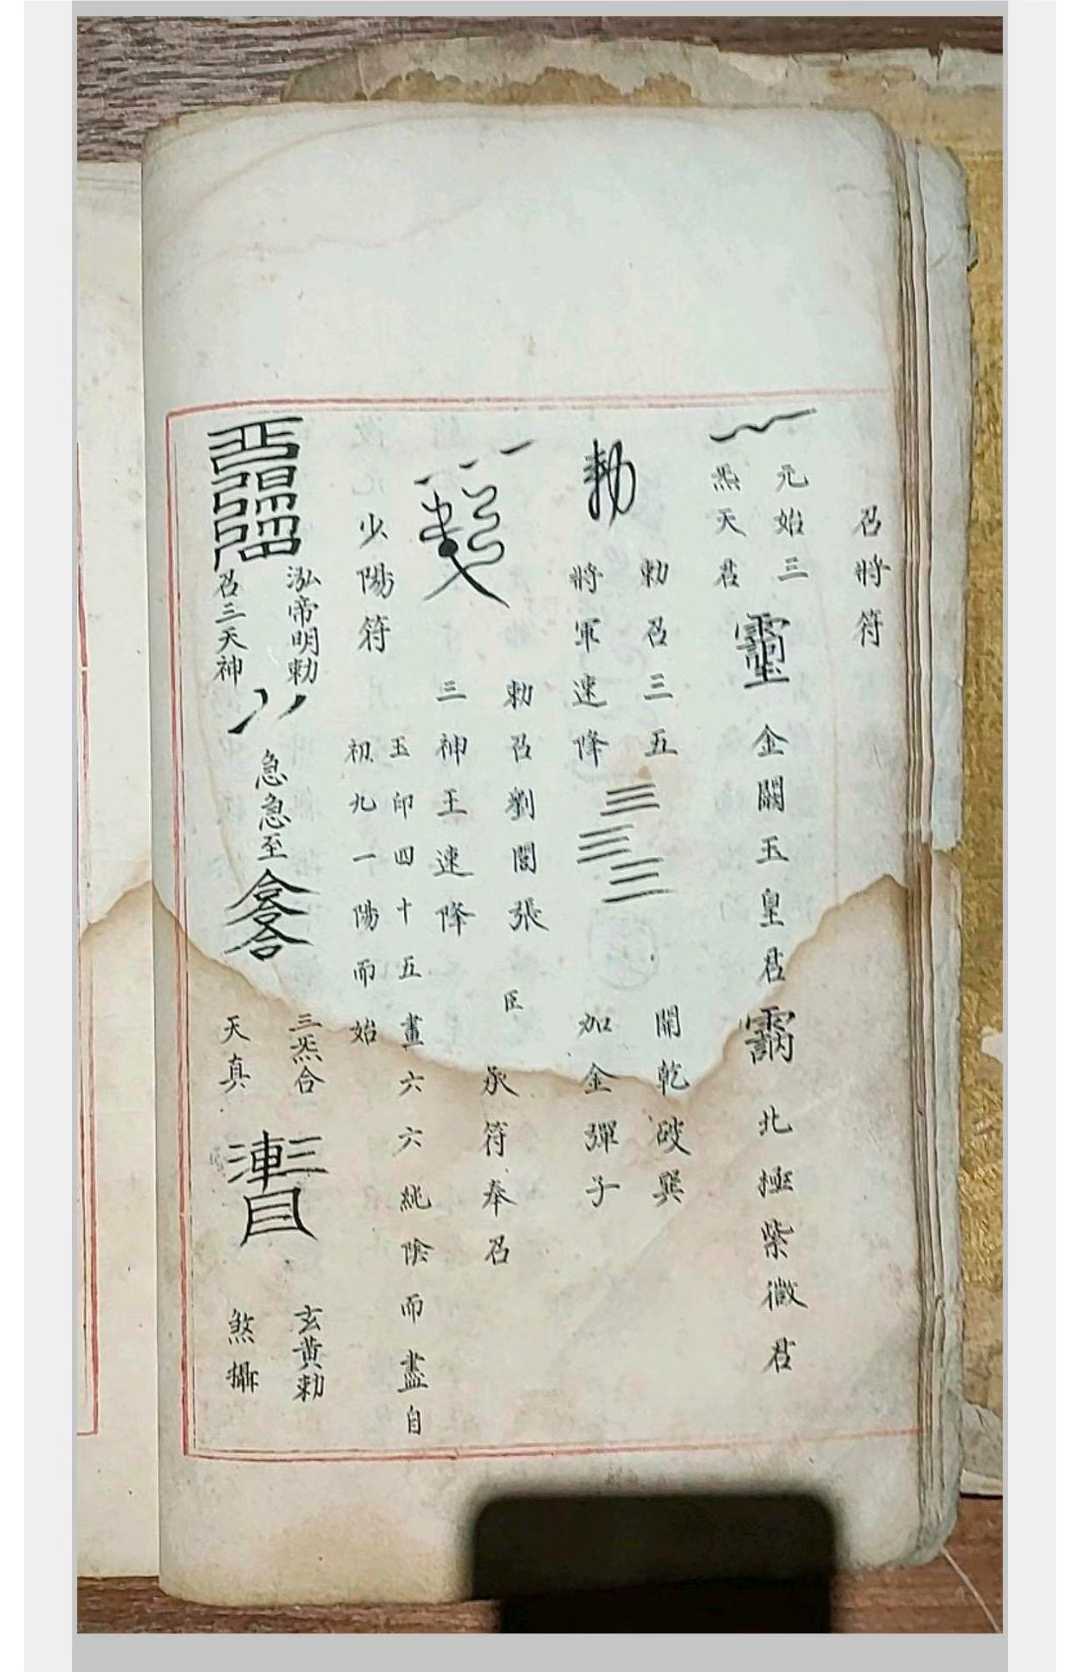 召將符
元始三
炁天君
金闕玉皇君
北極紫微君
勅
勅召三五
將軍速降
開乾破巽
加金彈子
勅召劉閻張
三神王速降
臣
承符奉召
少陽符
玉印四十五畫六六純陰而盡自
初九一陽而始
泓帝明勅
召三天神
急急至
三炁合
天真
玄黃勅
煞攝